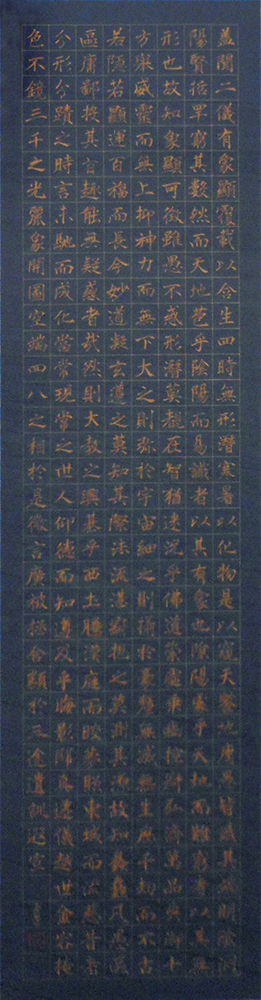 蓋聞二儀有象顯覆載以含生四時無形潛寒暑以化物是以窺天鑒地庸愚皆識其端明陰洞
陽賢哲罕窮其數然而天地苞乎陰陽而易識者以其有象也陰陽處乎天地而難窮者以其無
形也故知象顯可徵雖愚不惑形潛莫覩在智猶迷況乎佛道崇虛乘幽控寂弘濟萬品典御十
方舉威靈而無上抑神力而無下大之則彌於宇宙細之則攝於豪釐無滅無生歷千劫而不古
若隱若顯運百福而長今妙道凝玄遵之莫知其際法流湛寂挹之莫測其源故知蠢蠢凡愚區
區庸鄙投其旨趣能無疑惑者哉然則大教之興基乎西土騰漢庭而皎夢照東域而流慈昔者
分形分蹟之時言未馳而成化當常現常之世人仰德而知遵及乎晦影歸真遷儀越世金容掩
色不鏡三千之光麗象開圖空端四八之相於是微言廣被拯含類於三途遺訓遐宣